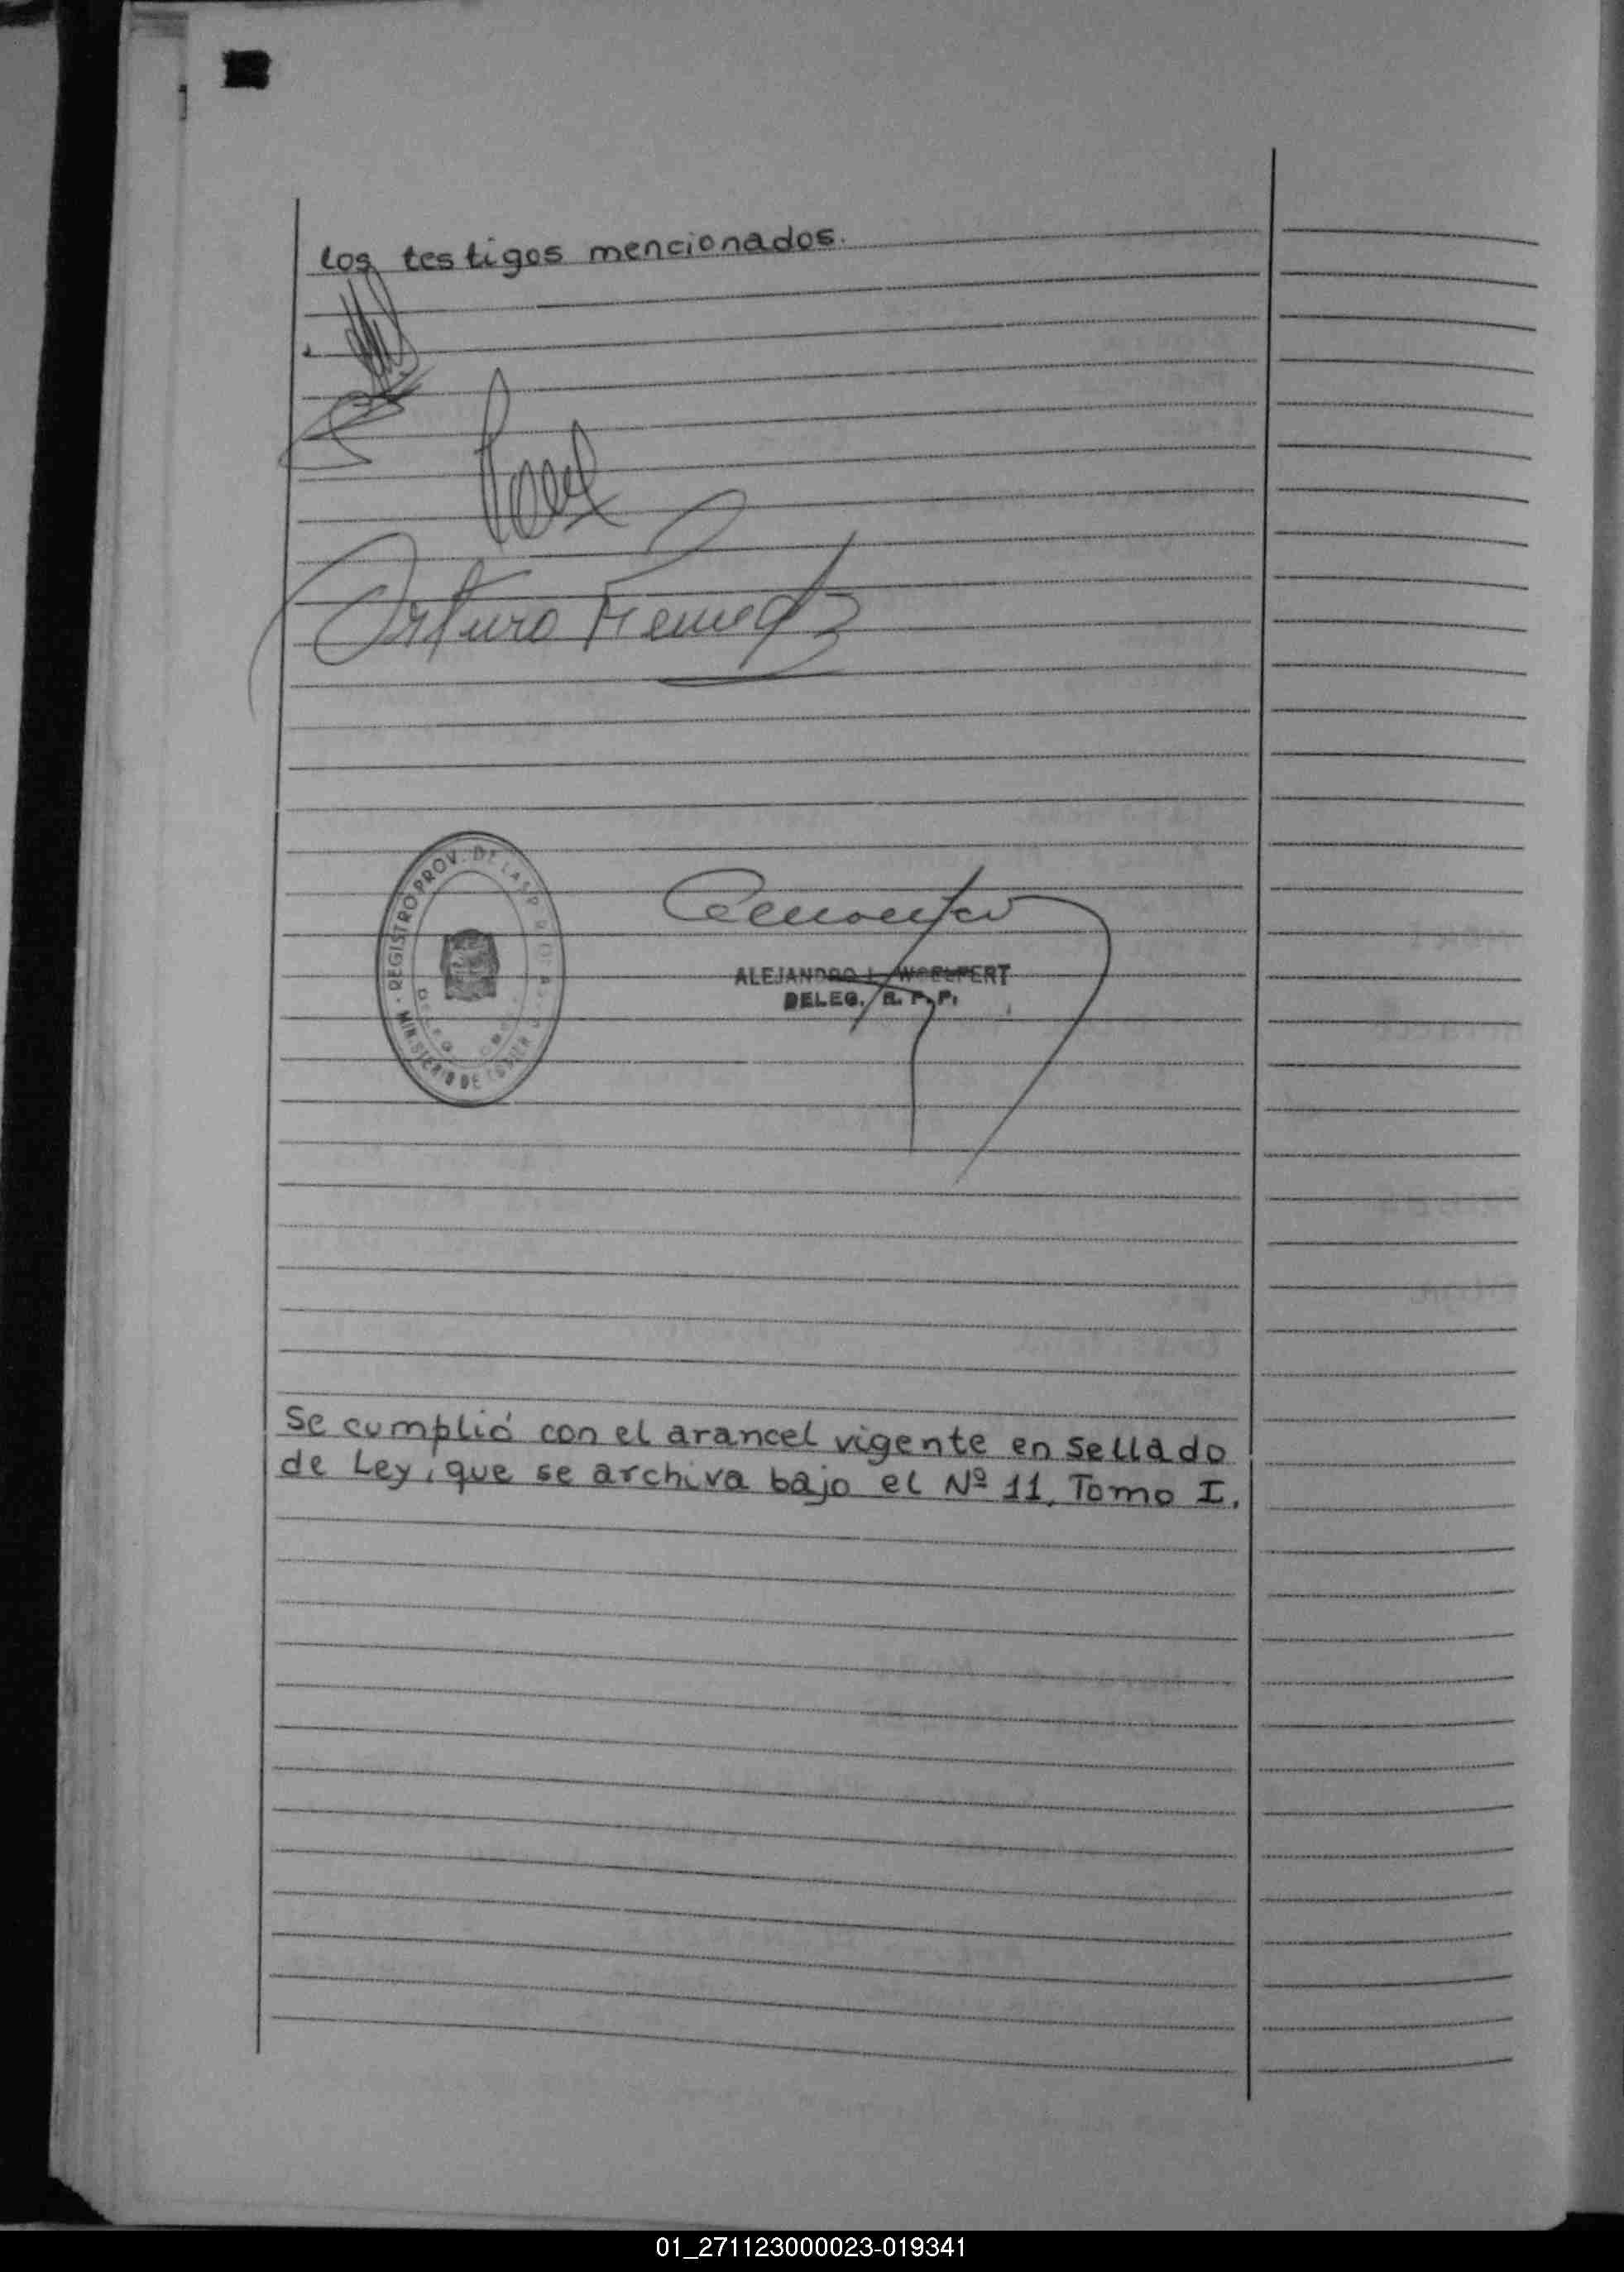 los testigos mencionados.
Arturo
REGISTRO PROV. DE LAS P
MINISTERIO DE
ALEJANDRO L. WOELFERT
DELEG. R. P. P.
Se cumplió con el arancel vigente en sellado
de Ley, que se archiva bajo el Nº 11, Tomo I.
01_271123000023-019341